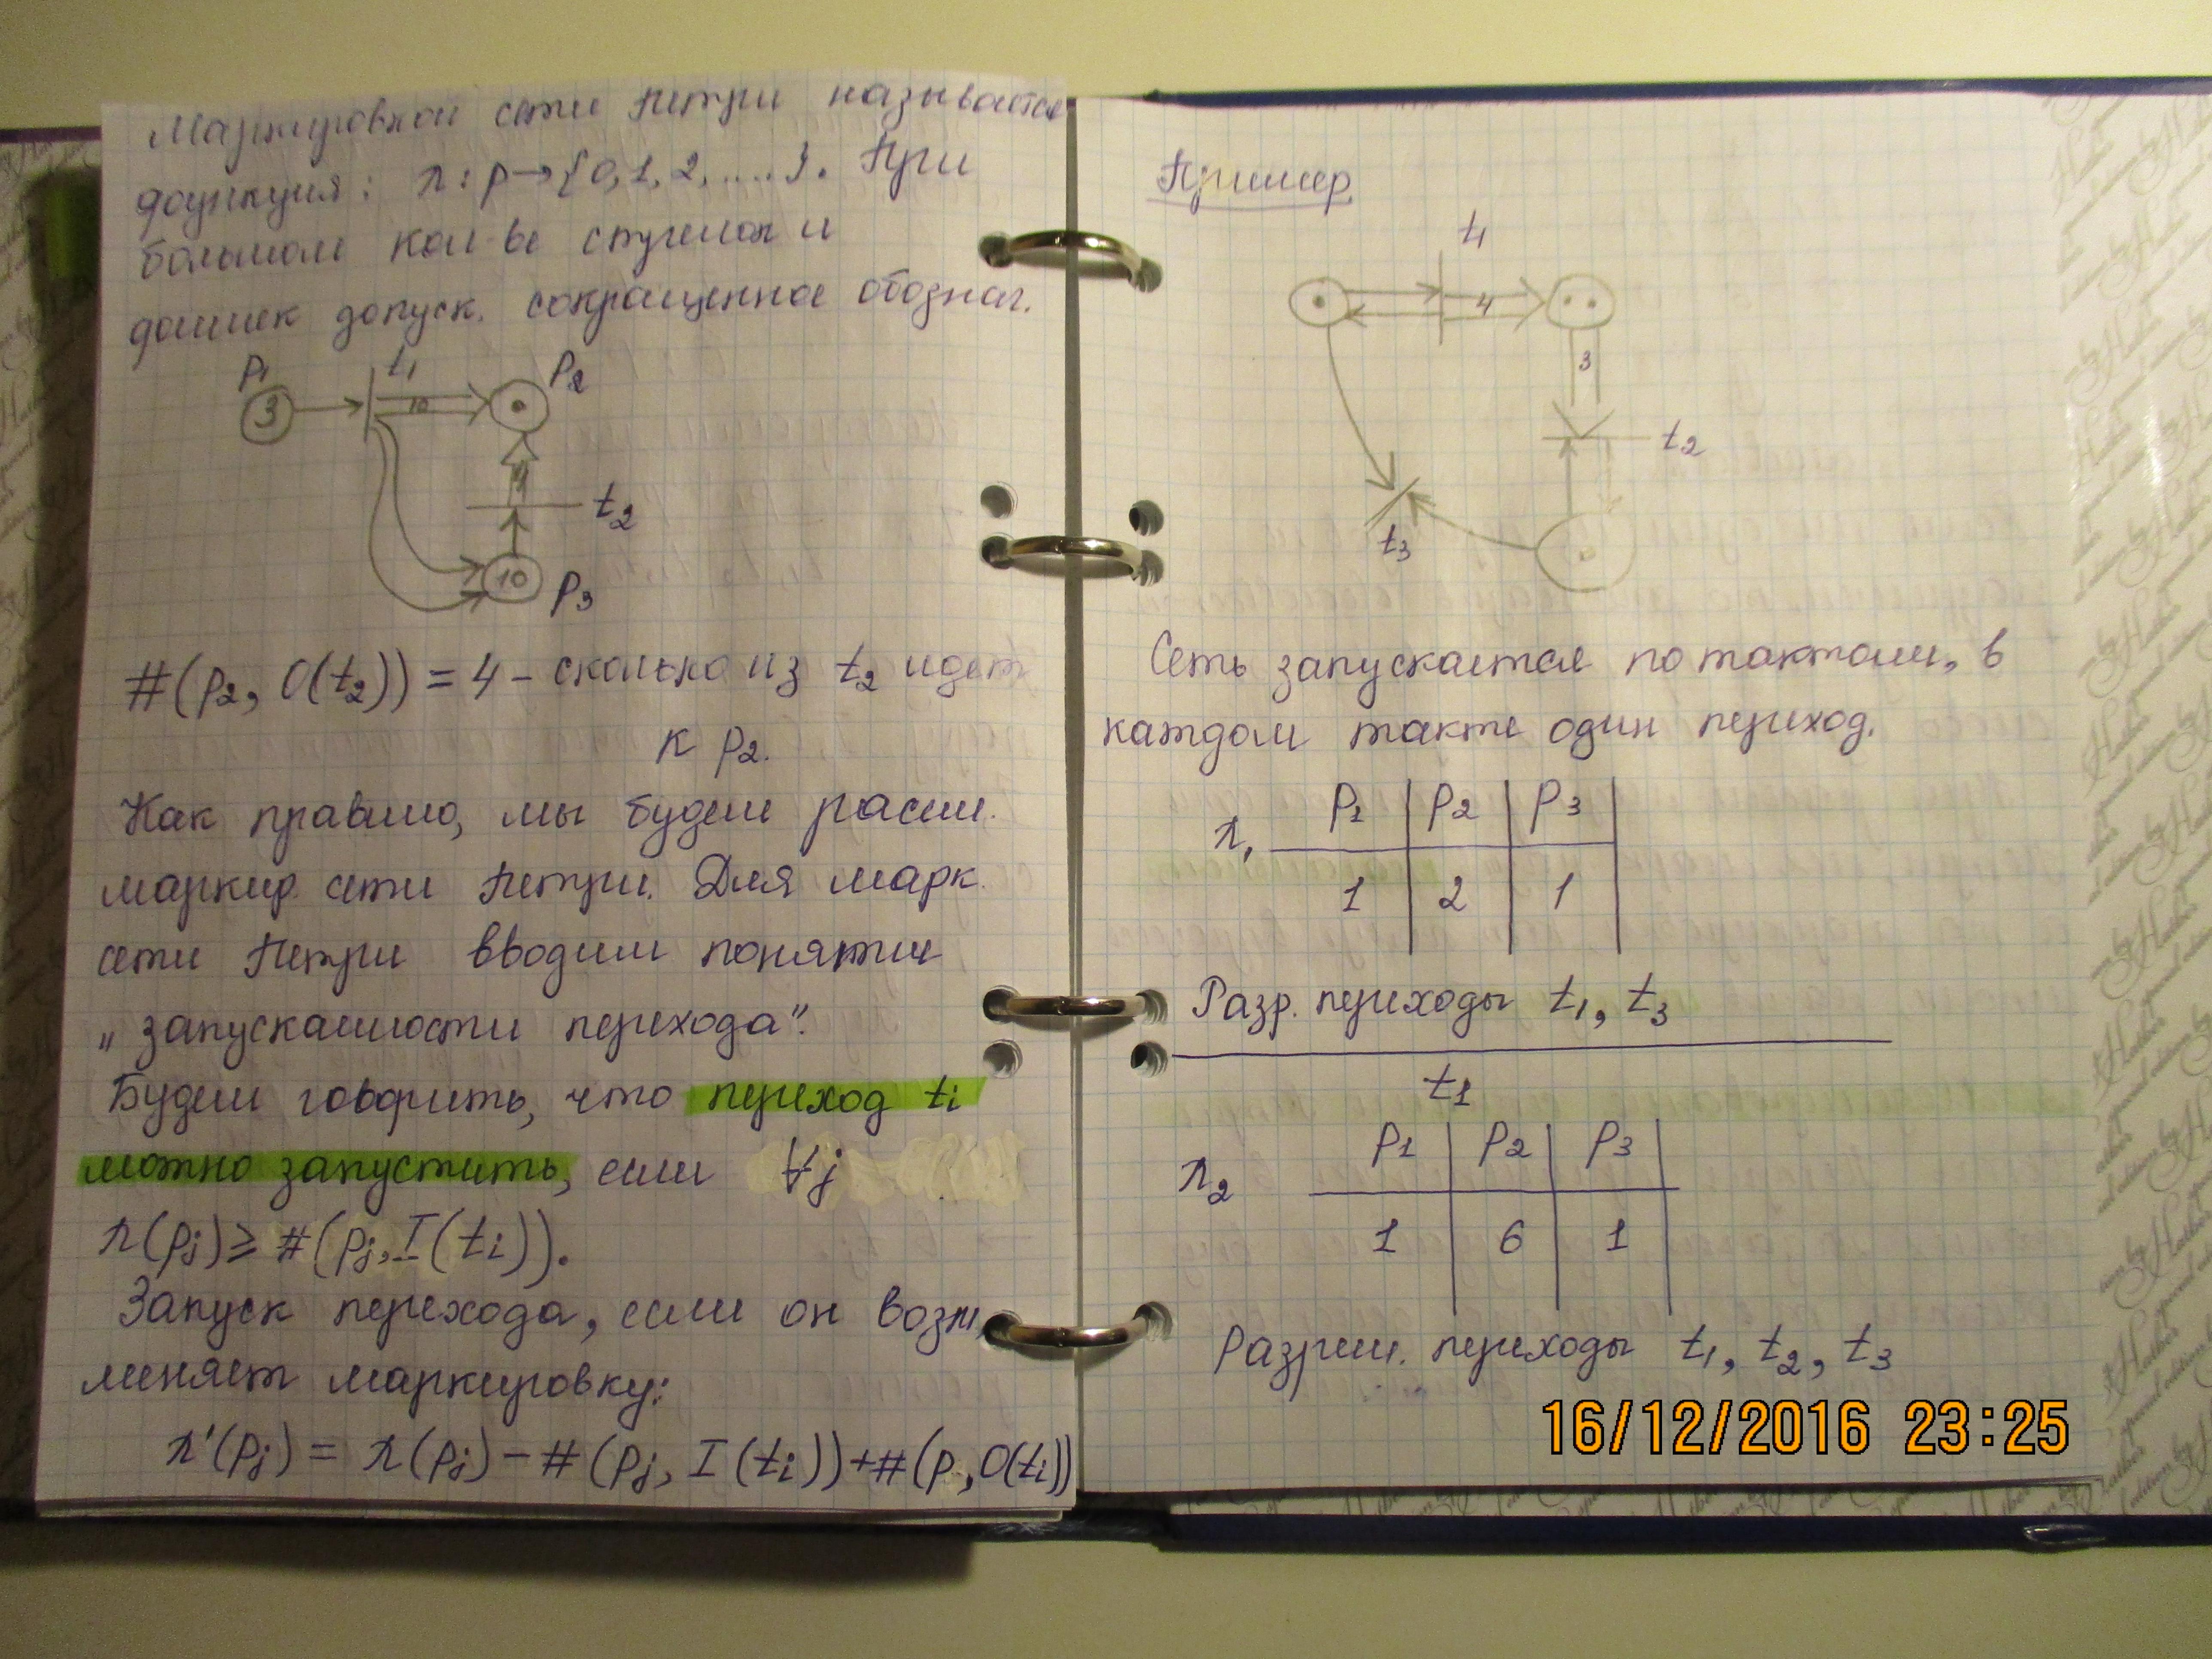 Маркировкой сети Петри называется
функция: μ: p→{0,1,2,....}. При
большом кол-ве стрелок и
фишек допуск. сокращенное обознач.
p1 t1 p2
3 10
4
t2
10 p3
#(p2, O(t2)) = 4 – сколько из t2 идет
к p2.
Как правило, мы будем рассм.
маркир. сети Петри. Для марк.
сети Петри вводим понятие
„запускаемости перехода".
Будем говорить, что переход ti
можно запустить, если ∀j
μ(pj) ≥ #(pj, I(ti)).
Запуск перехода, если он возм,
меняет маркировку:
μ'(pj) = μ(pj) – #(pj, I(ti)) + #(p, O(ti))
Пример
t1
4
3
t2
t3
Сеть запускается по тактам, в
каждом такте один переход.
p1 p2 p3
μ1
1 2 1
Разр. переходы t1, t3
t1
p1 p2 p3
μ2
1 6 1
Разреш. переходы t1, t2, t3
16/12/2016 23:25